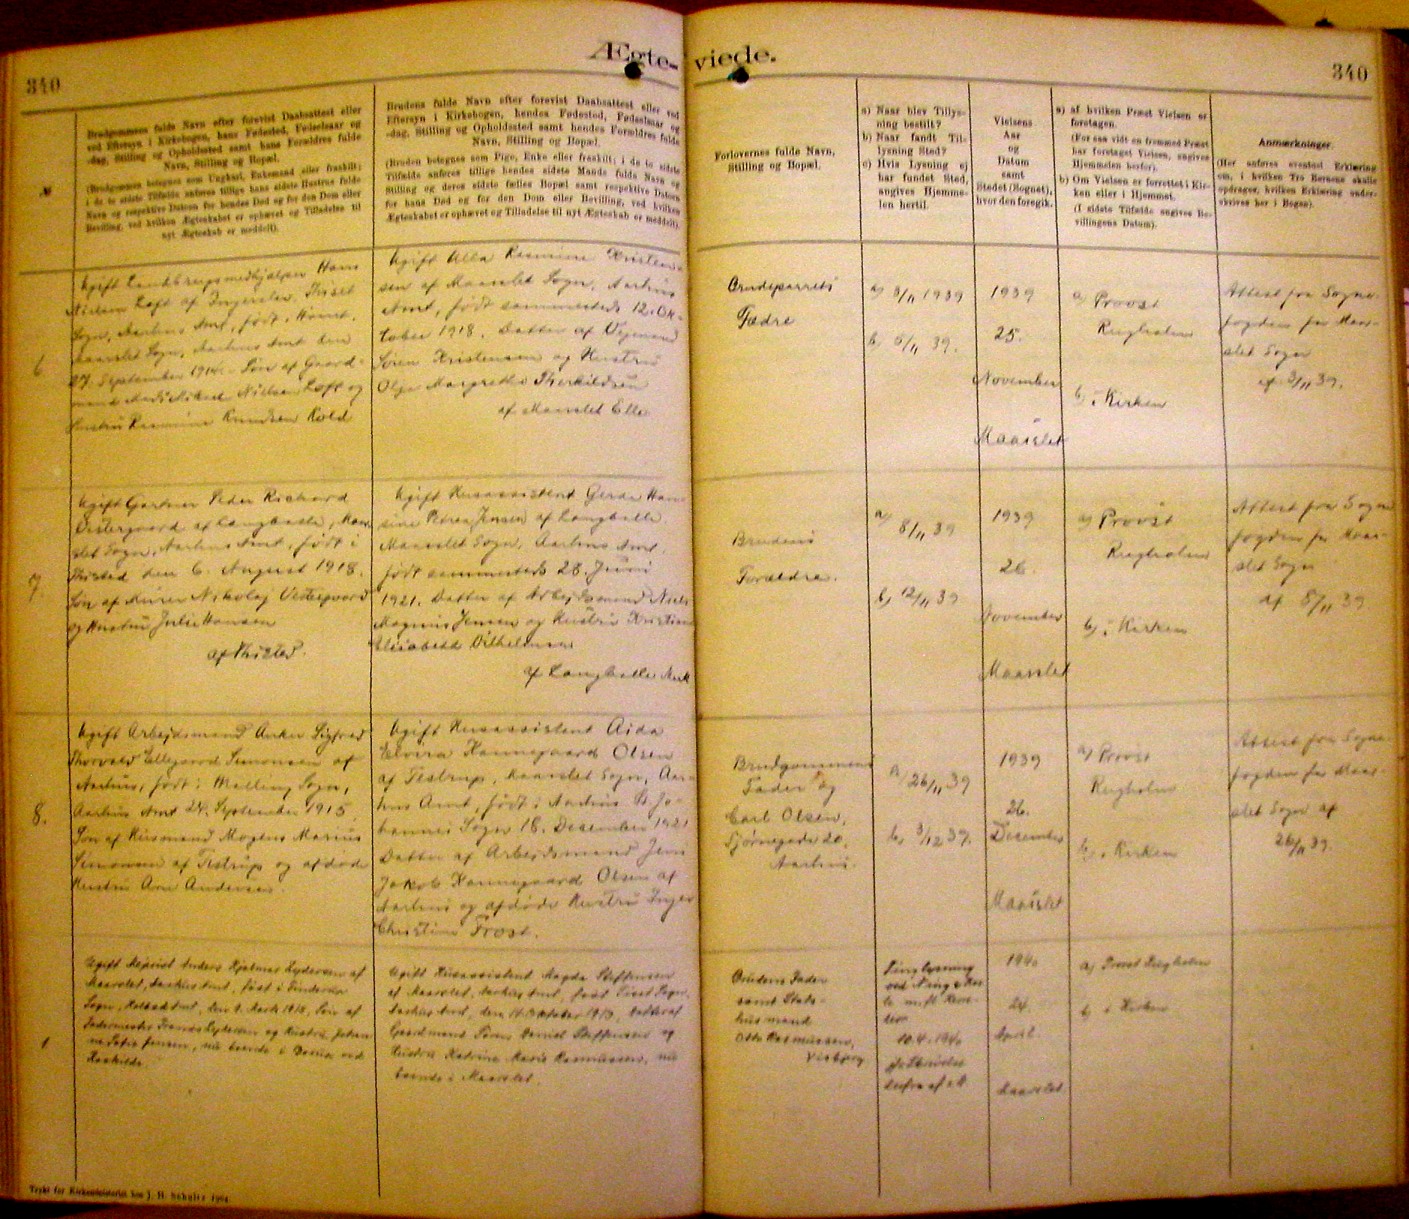 340
Ægte-
viede.
340
Brudgommens fulde Navn efter forevist Daabsattest eller
ved Eftersyn i Kirkebogen, hans Fødested, Fødselsaar og
-dag, Stilling og Opholdssted samt hans Forældres fulde
Navn, Stilling og Bopæl.
(Brudgommen betegnes som Ungkarl, Enkemand eller fraskilt;
i de to sidste Tilfælde anføres tillige hans sidste Hustrus fulde
Navn og respektive Datoen for hendes Død og for den Dom eller
Bevilling, ved hvilken Ægteskabet er ophævet og Tilladelse til
nyt Ægteskab er meddelt).
Brudens fulde Navn efter forevist Daabsattest eller ved
Eftersyn i Kirkebogen, hendes Fødested, Fødselsaar og
-dag, Stilling og Opholdssted samt hendes Forældres fulde
Navn, Stilling og Bopæl.
(Bruden betegnes som Pige, Enke eller fraskilt; i de to sidste
Tilfælde anføres tillige hendes sidste Mands fulde Navn og
Stilling og deres sidste fælles Bopæl samt respektive Datoen
for hans Død og for den Dom eller Bevilling, ved hvilken
Ægteskabet er ophævet og Tilladelse til nyt Ægteskab er meddelt).
Forlovernes fulde Navn,
Stilling og Bopæl.
a) Naar blev Tillys-
ning bestilt?
b) Naar fandt Til-
lysning Sted?
c) Hvis Lysning ej
har fundet Sted,
angives Hjemme-
len hertil.
Vielsens
Aar
og
Datum
samt
Stedet (Sognet),
hvor den foregik.
a) af hvilken Præst Vielsen er
foretagen.
(For saa vidt en fremmed Præst
har foretaget Vielsen, angives
Hjemmelen herfor).
b) Om Vielsen er forrettet i Kir-
ken eller i Hjemmet.
(I sidste Tilfælde angives Be-
villingens Datum).
Anmærkninger.
(Her anføres eventuel Erklæring
om, i hvilken Tro Børnene skulle
opdrages, hvilken Erklæring under-
skrives her i Bogen).
6
Ugift Landbrugsmedhjælper Hans
Nielsen Loft af Ingerslev, Tiset
Sogn, Aarhus Amt, født i
Maarslet Sogn, Aarhus Amt den
27. September 1914. Søn af Gaard-
mand Nielsen Loft og
Hustru Rasmine Knudsen Kold
Ugift Rasmine Kristen-
sen af Maarslet Sogn, Aarhus
Amt, født sammesteds 12. Ok-
tober 1918. Datter af Vejmand
Søren Kristensen og Hustru
Olga Margrethe Therkildsen
af Maarslet
Brudeparrets
Fædre
a) 3/11 1939
b) 5/11 39.
1939
25.
November
Maarslet
a) Provst
Rugholm
b) i Kirken
Attest fra Sogne-
fogden for Maar-
slet Sogn
af 3/11 39.
7
Ugift Gartner Peder Richard
Vestergaard af Langballe, Maar-
slet Sogn, Aarhus Amt, født i
Thisted den 6. August 1918.
Søn af Murer Nikolaj Vestergaard
og Hustru Julie Hansen
af Thisted.
Ugift Husassistent Gerda Han-
sine Petrea Jensen af Langballe
Maarslet Sogn, Aarhus Amt,
født sammesteds 28. Juni
1921. Datter af Arbejdsmand Niels
Magnus Jensen og Hustru Kristiane
Elisabeth Vilhelmsen
af Langballe Mark
Brudens
Forældre.
a) 8/11 39
b) 12/11 39
1939
26.
November
Maarslet
a) Provst
Rugholm
b) i Kirken
Attest fra Sogne-
fogden for Maar-
slet Sogn
af 8/11 39
8.
Ugift Arbejdsmand Anker Sigfred
Thorvald Ellegaard Simonsen af
Aarhus, født i Malling Sogn,
Aarhus Amt 24. September 1915.
Søn af Husmand Mogens Marius
Simonsen af Testrup og afdøde
Hustru Ane Andersen.
Ugift Husassistent Aida
Elvira Kannegaard Olsen
af Testrup, Maarslet Sogn, Aar-
hus Amt, født i Aarhus St. Jo-
hannes Sogn 18. December 1921
Datter af Arbejdsmand Jens
Jakob Kannegaard Olsen af
Aarhus og afdøde Hustru Inger
Christine Frost.
Brudgommens
Fader og
Carl Olsen,
20,
Aarhus.
a) 26/11 39
b) 3/12 39.
1939
26.
December
Maarslet
a) Provst
Rugholm
b) i Kirken
Attest fra Sogne-
fogden for Maar-
slet Sogn af
26/11 39.
1
Ugift Anders Hjalmar Lydersen af
Maarslet, Aarhus Amt, født i
Sogn, Holbæk Amt, den 9. Marts 1915, Søn af
Lydersen og Hustru Johan-
ne Jensen, nu boende i ved
Roskilde.
Ugift Husassistent Magda Steffensen
af Maarslet, Aarhus Amt, født Tiset Sogn,
Aarhus Amt, den Oktober 1913, Datter af
Gaardmand Daniel Steffensen og
Hustru Katrine Marie Rasmussen, nu
boende i Maarslet.
Brudens Fader
samt Stats-
husmand
Otto Rasmussen,
Visbjerg
Tinglysning
ved Ning
10.4.1940
1940
24.
April.
Maarslet.
a) Provst Rugholm
b) i Kirken
Trykt for Kirkeministeriet hos J. H. Schultz 1904